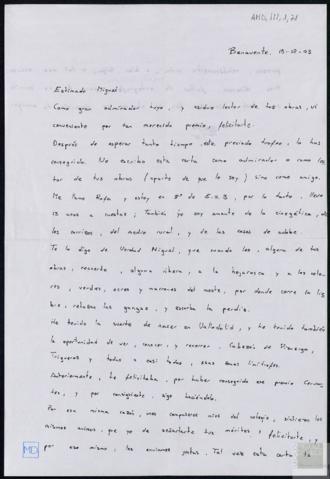 AMD, III, 1, 21
Benavente, 13-12-93
Estimado Miguel
Como gran admirador tuyo, y asiduo lector de tus obras, vi
conveniente por tan merecido premio, felicitarte.
Después de esperar tanto tiempo, este preciado trofeo, lo has
conseguido. No escribo esta carta como admirador o como lec
tor de tus obras (aparte de que lo soy) sino como amigo.
Me llamo Rafa y estoy en 8º de E.G.B, por lo tanto, llevo
13 años a cuestas; También yo soy amante de la cinegética, de
los carrizos, del medio rural, y de las casas de adobe.
Te lo digo de verdad Miguel, que cuando leo, alguna de tus
obras, recuerdo, alguna ribera, a la hojarasca y a los colo
res, verdes, ocres y marrones del monte, por donde corre la lie
bre, relucen las gangas, y escucha la perdiz.
He tenido la suerte de nacer en Valladolid, y he tenido también
la oportunidad de ver, conocer, y recorrer, Cabezón de Pisuerga,
Trigueros y todas o casi todas, esas zonas limítrofes.
Anteriormente, te felicitaba, por haber conseguido ese premio Cervan
tes, y por consiguiente, sigo haciéndolo.
Por esa misma razón, unos compañeros míos del colegio, sintieron los
mismos ánimos, que yo de señalarte tus méritos, y felicitarte, y
por eso mismo, las enviamos juntas. Tal vez esta carta te
MD